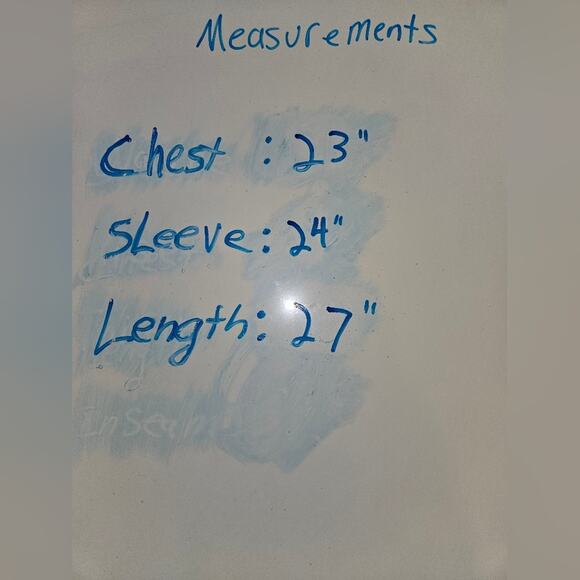 Measurements
Chest : 23"
Sleeve: 24"
Length: 27"
Inseam